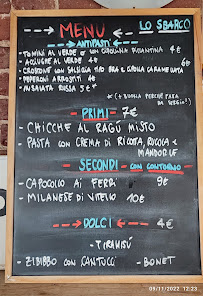 MENU
LO SBARCO
ANTIPASTI
- TOMINI AL VERDE CON GIARDINIERA PIEMONTINA 4€
- ACCIUGHE AL VERDE 4€
- CROSTONE CON SALSICCIA BRA E CIPOLLA CARAMELLATA 6€
- PEPERONI ARROSTITI 4€
- INSALATA RUSSA 5€ *
*(+ BUONA PERCHÉ
PRIMI - 7€
- CHICCHE AL RAGÚ MISTO
- PASTA CON CREMA DI RICOTTA, RUCOLA E
MANDORLE
SECONDI - CON CONTORNO
- CAPOCOLLO AI FERRI 9€
- MILANESE DI VITELLO 10€
DOLCI - 4€
- TIRAMISÚ
- ZIBIBBO CON CANTUCCI - BONET
09/11/2022 12:23